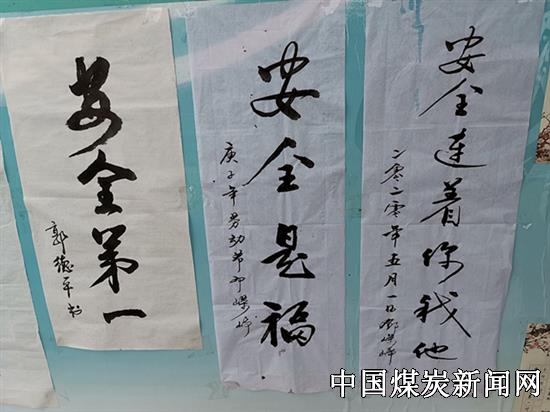 安全第一
郭德平书
安全是福
庚子年劳动节
安全連着你我他
二零二零年五月一日
中国煤炭新闻网